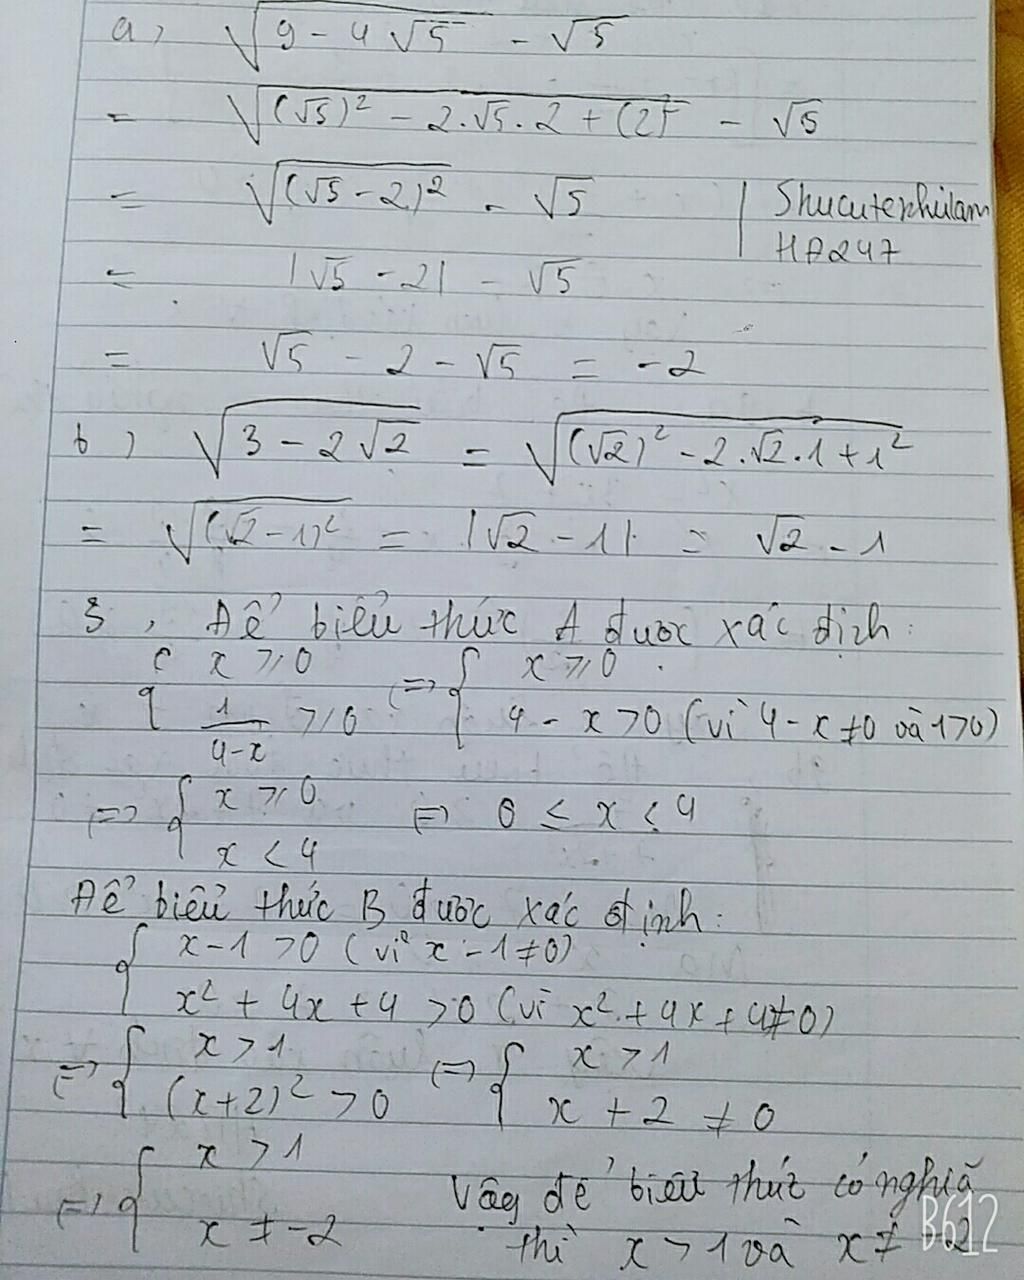 a, √(9 - 4√5) - √5
= √((√5)² - 2.√5.2 + (2)²) - √5
= √((√5 - 2)²) - √5
Shucutephulam
HA247
= |√5 - 2| - √5
= √5 - 2 - √5 = -2
b) √(3 - 2√2) = √((√2)² - 2.√2.1 + 1²)
= √((√2 - 1)²) = |√2 - 1| = √2 - 1
3, Để biểu thức A được xác định:
{ x ≥ 0 <=> { x ≥ 0
1/(4-x) ≥ 0 4 - x > 0 (vì 4 - x ≠ 0 và 1>0)
<=> { x ≥ 0 <=> 0 ≤ x < 4
x < 4
Để biểu thức B được xác định:
{ x - 1 > 0 (vì x - 1 ≠ 0)
x² + 4x + 4 > 0 (vì x² + 4x + 4 ≠ 0)
<=> { x > 1 <=> { x > 1
(x+2)² > 0 x + 2 ≠ 0
<=> { x > 1
x ≠ -2
Vậy để biểu thức có nghĩa
thì x > 1 và x ≠ 2
B612